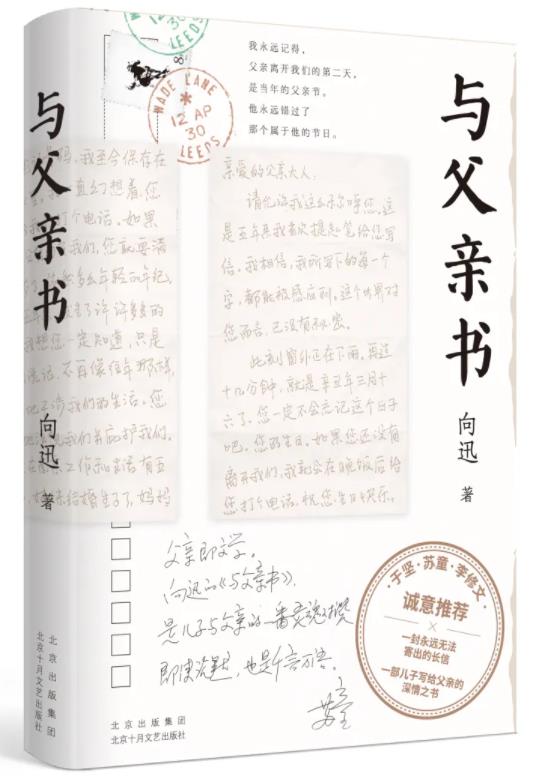 与父亲书
向迅
著
北京出版集团
北京十月文艺出版社
WADE LANE
12 AP
30
LEEDS
8
我永远记得,
父亲离开我们的第二天,
是当年的父亲节。
他永远错过了
那个属于他的节日。
与父亲书
向迅
著
我至今保存在
直幻想着,您
打个电话。如果
我们,您就要满
多么年轻的年纪。
许许多多的
我想您一定知道,只是
说话,不再像往年那样,
我们的生活。您
亲爱的父亲大人:
请允许我这么称呼您。这
是五年来我首次提起笔给您写
信。我相信,我所写下的每一个
字,都能被感应到。这个世界对
您而言,已没有秘密。
此刻窗外正在下雨。再过
十几分钟,就是辛丑年三月十
六了。您一定不会忘记这个日子
吧。您的生日。如果您还没有
离开我们,我就会在晚饭后给
您打个电话,祝您生日快乐。
父亲即文学。
向迅的《与父亲书》,
是儿子与父亲的一番灵魂
也是千言万语。
苏童
于坚·苏童·李修文
诚意推荐
一封永远无法
寄出的长信
一部儿子写给父亲的
深情之书
北京出版集团
北京十月文艺出版社